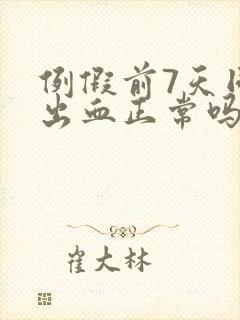 例假前7天
出血正常吗
崔大林